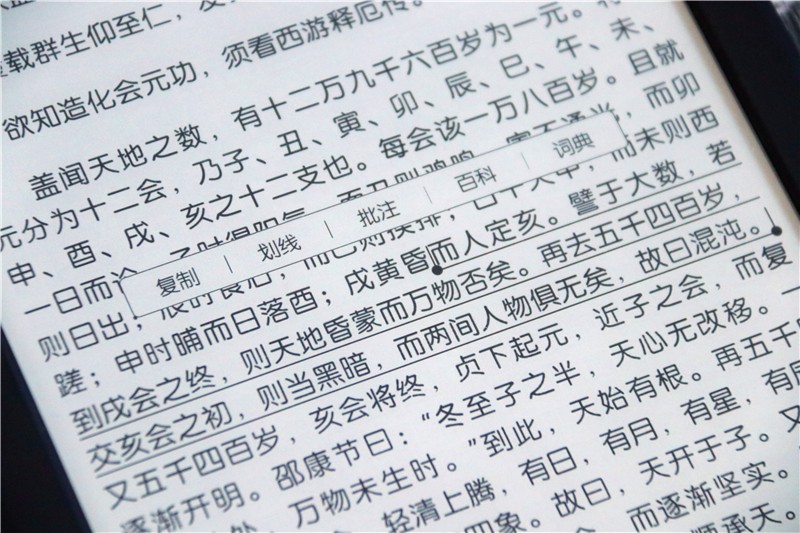 载群生仰至仁，发
欲知造化会元功，须看西游释厄传。
盖闻天地之数，有十二万九千六百岁为一元。
元分为十二会，乃子、丑、寅、卯、辰、巳、午、未、
申、酉、戌、亥之十二支也。每会该一万八百岁。且就
一日而论 子时得阳气 而丑则鸡鸣 寅不通光，而卯
复制 划线 批注 百科 词典
则日出；辰时食后，而巳则挨排；日午天中，而未则西
蹉；申时晡而日落酉；戌黄昏而人定亥。譬于大数，若
到戌会之终，则天地昏蒙而万物否矣。再去五千四百岁，
交亥会之初，则当黑暗，而两间人物俱无矣，故曰混沌。
又五千四百岁，亥会将终，贞下起元，近子之会，而复
逐渐开明。邵康节曰：“冬至子之半，天心无改移。一
万物未生时。”到此，天始有根。再五千四
轻清上腾，有日，有月，有星，有辰
四象。故曰，天开于子。又
而逐渐坚实。
顺承天。